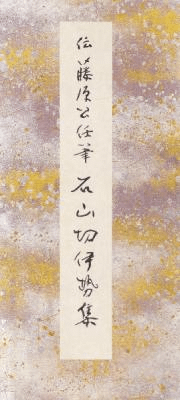 伝藤原公任筆石山切伊勢集